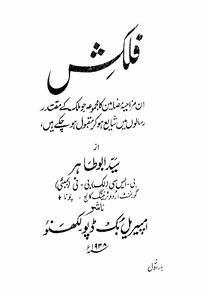 فلکش
ان مزاحیہ مضامین کا مجموعہ جو ملک کے مقتدر
رسالوں میں شایع ہو کر مقبول ہو چکے ہیں،
از
سید ابو طاہر
بی۔ ایس سی (علیگ) بی۔ ٹی (بمبئی)
گورنمنٹ اردو ٹریننگ کالج، پونا
ناشر
امپیریل بک ڈپو لکھنؤ
۱۹۳۸ء
بار اول